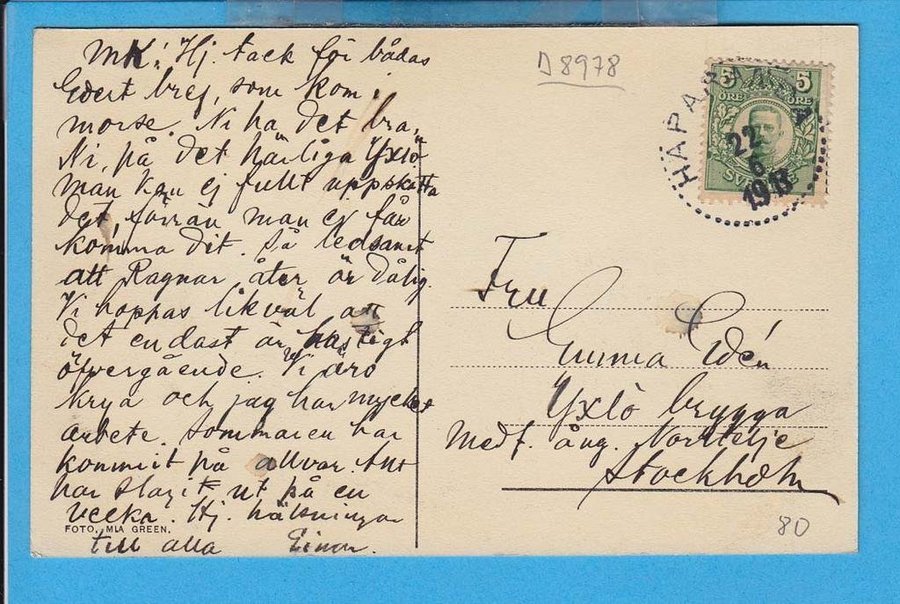 MK! Hj. tack för bådas
Edert bref, som kom i
morse. Ni ha det bra,
Ni, på det härliga Yxlö
man kan ej fullt uppskatta
det, förrän man ej får
komma dit. Så ledsamt
att Ragnar åter är dålig
Vi hoppas likväl att
det endast är hastigt
öfvergående. Vi äro
krya och jag har mycket
arbete. Sommaren har
kommit på allvar. Allt
har slagit ut på en
vecka. Hj. hälsningar
till alla Einar.
FOTO, MIA GREEN.
D 8978
HAPARANDA
22
6
1913
5 5
ÖRE ÖRE
SVERIGE
Fru
Gunma Edén
Yxlö brygga
Medf. ång. Norrtelje
Stockholm
80